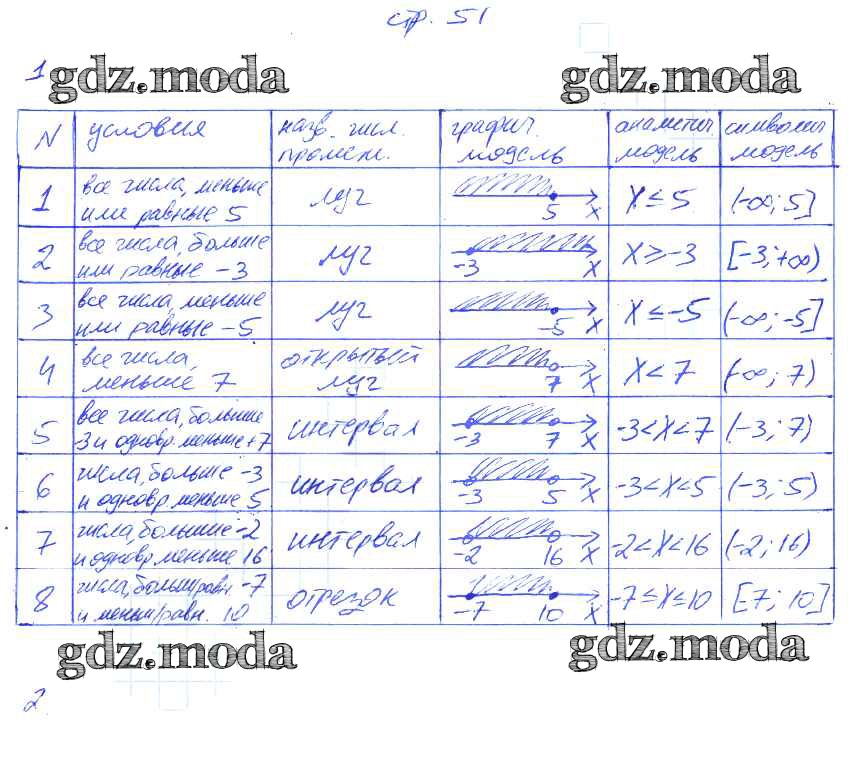 стр. 51
1
gdz.moda gdz.moda
N условия назв. числ. промеж. графич. модель аналитич модель символич модель
1 все числа, меньше или равные 5 луч 5 x x ≤ 5 (-∞; 5]
2 все числа, больше или равные -3 луч -3 x x ≥ -3 [-3; +∞)
3 все числа, меньше или равные -5 луч -5 x x ≤ -5 (-∞; -5]
4 все числа, меньше 7 открытый луч 7 x x < 7 (-∞; 7)
5 все числа, больше -3 и одновр. меньше +7 интервал -3 7 x -3 < x < 7 (-3; 7)
6 числа, больше -3 и одновр. меньше 5 интервал -3 5 x -3 < x < 5 (-3; 5)
7 числа, больше -2 и одновр. меньше 16 интервал -2 16 x -2 < x < 16 (-2; 16)
8 числа, больш/равн -7 и меньш/равн. 10 отрезок -7 10 x -7 ≤ x ≤ 10 [7; 10]
gdz.moda gdz.moda
2